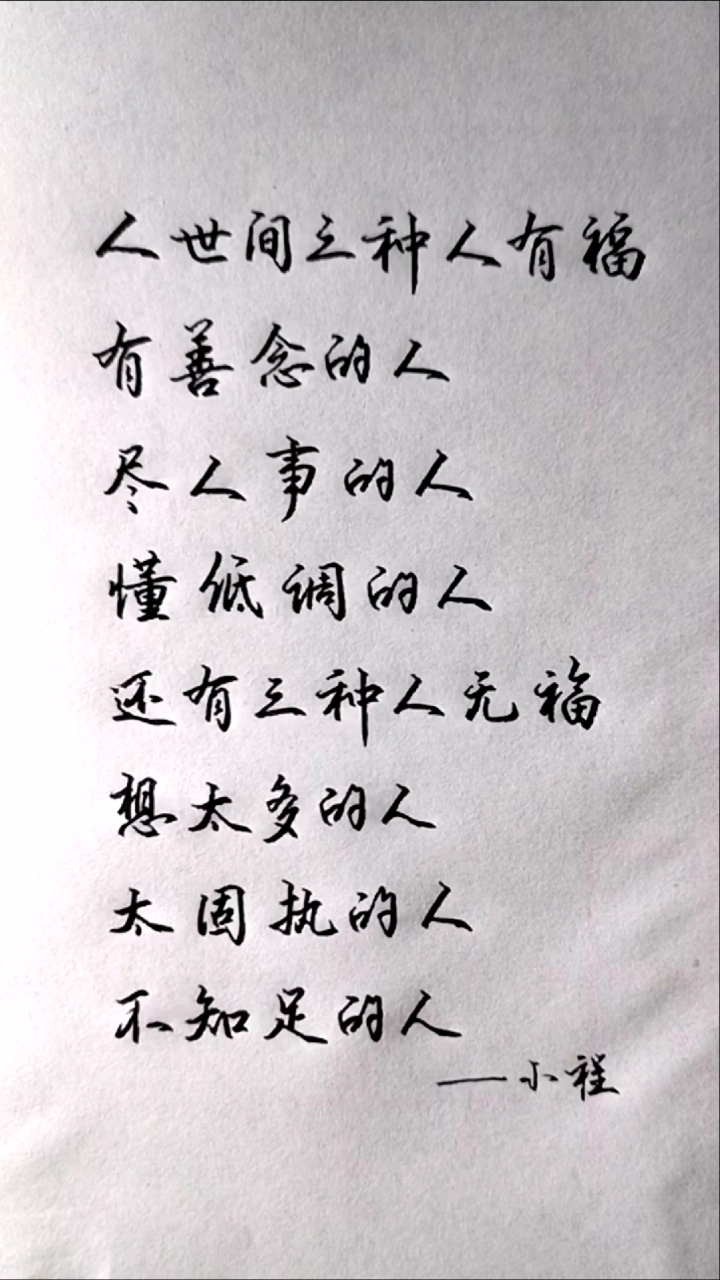 人世间三种人有福
有善念的人
尽人事的人
懂低调的人
还有三种人无福
想太多的人
太固执的人
不知足的人
——小程